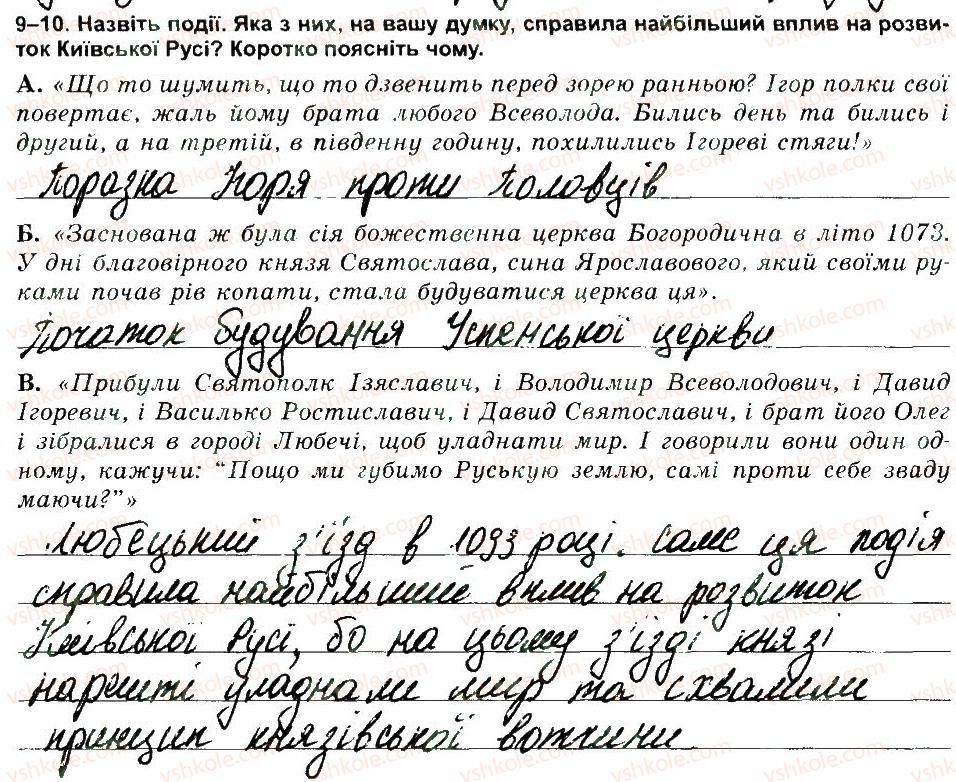 9–10. Назвіть події. Яка з них, на вашу думку, справила найбільший вплив на розви-
ток Київської Русі? Коротко поясніть чому.
А. «Що то шумить, що то дзвенить перед зорею ранньою? Ігор полки свої
повертає, жаль йому брата любого Всеволода. Бились день та бились і
другий, а на третій, в південну годину, похилились Ігореві стяги!»
Поразка Ігоря проти Половців
Б. «Заснована ж була сія божественна церква Богородична в літо 1073.
У дні благовірного князя Святослава, сина Ярославового, який своїми ру-
ками почав рів копати, стала будуватися церква ця».
Початок будування Успенської церкви
В. «Прибули Святополк Ізяславич, і Володимир Всеволодович, і Давид
Ігоревич, і Василько Ростиславич, і Давид Святославич, і брат його Олег
і зібралися в городі Любечі, щоб уладнати мир. І говорили вони один од-
ному, кажучи: "Пощо ми губимо Руськую землю, самі проти себе зваду
маючи?"»
Любецький з'їзд в 1093 році. Саме ця подія
справила найбільший вплив на розвиток
Київської Русі, бо на цьому з'їзді князі
нарешті уладнали мир та схвалили
принцип князівської вотчини